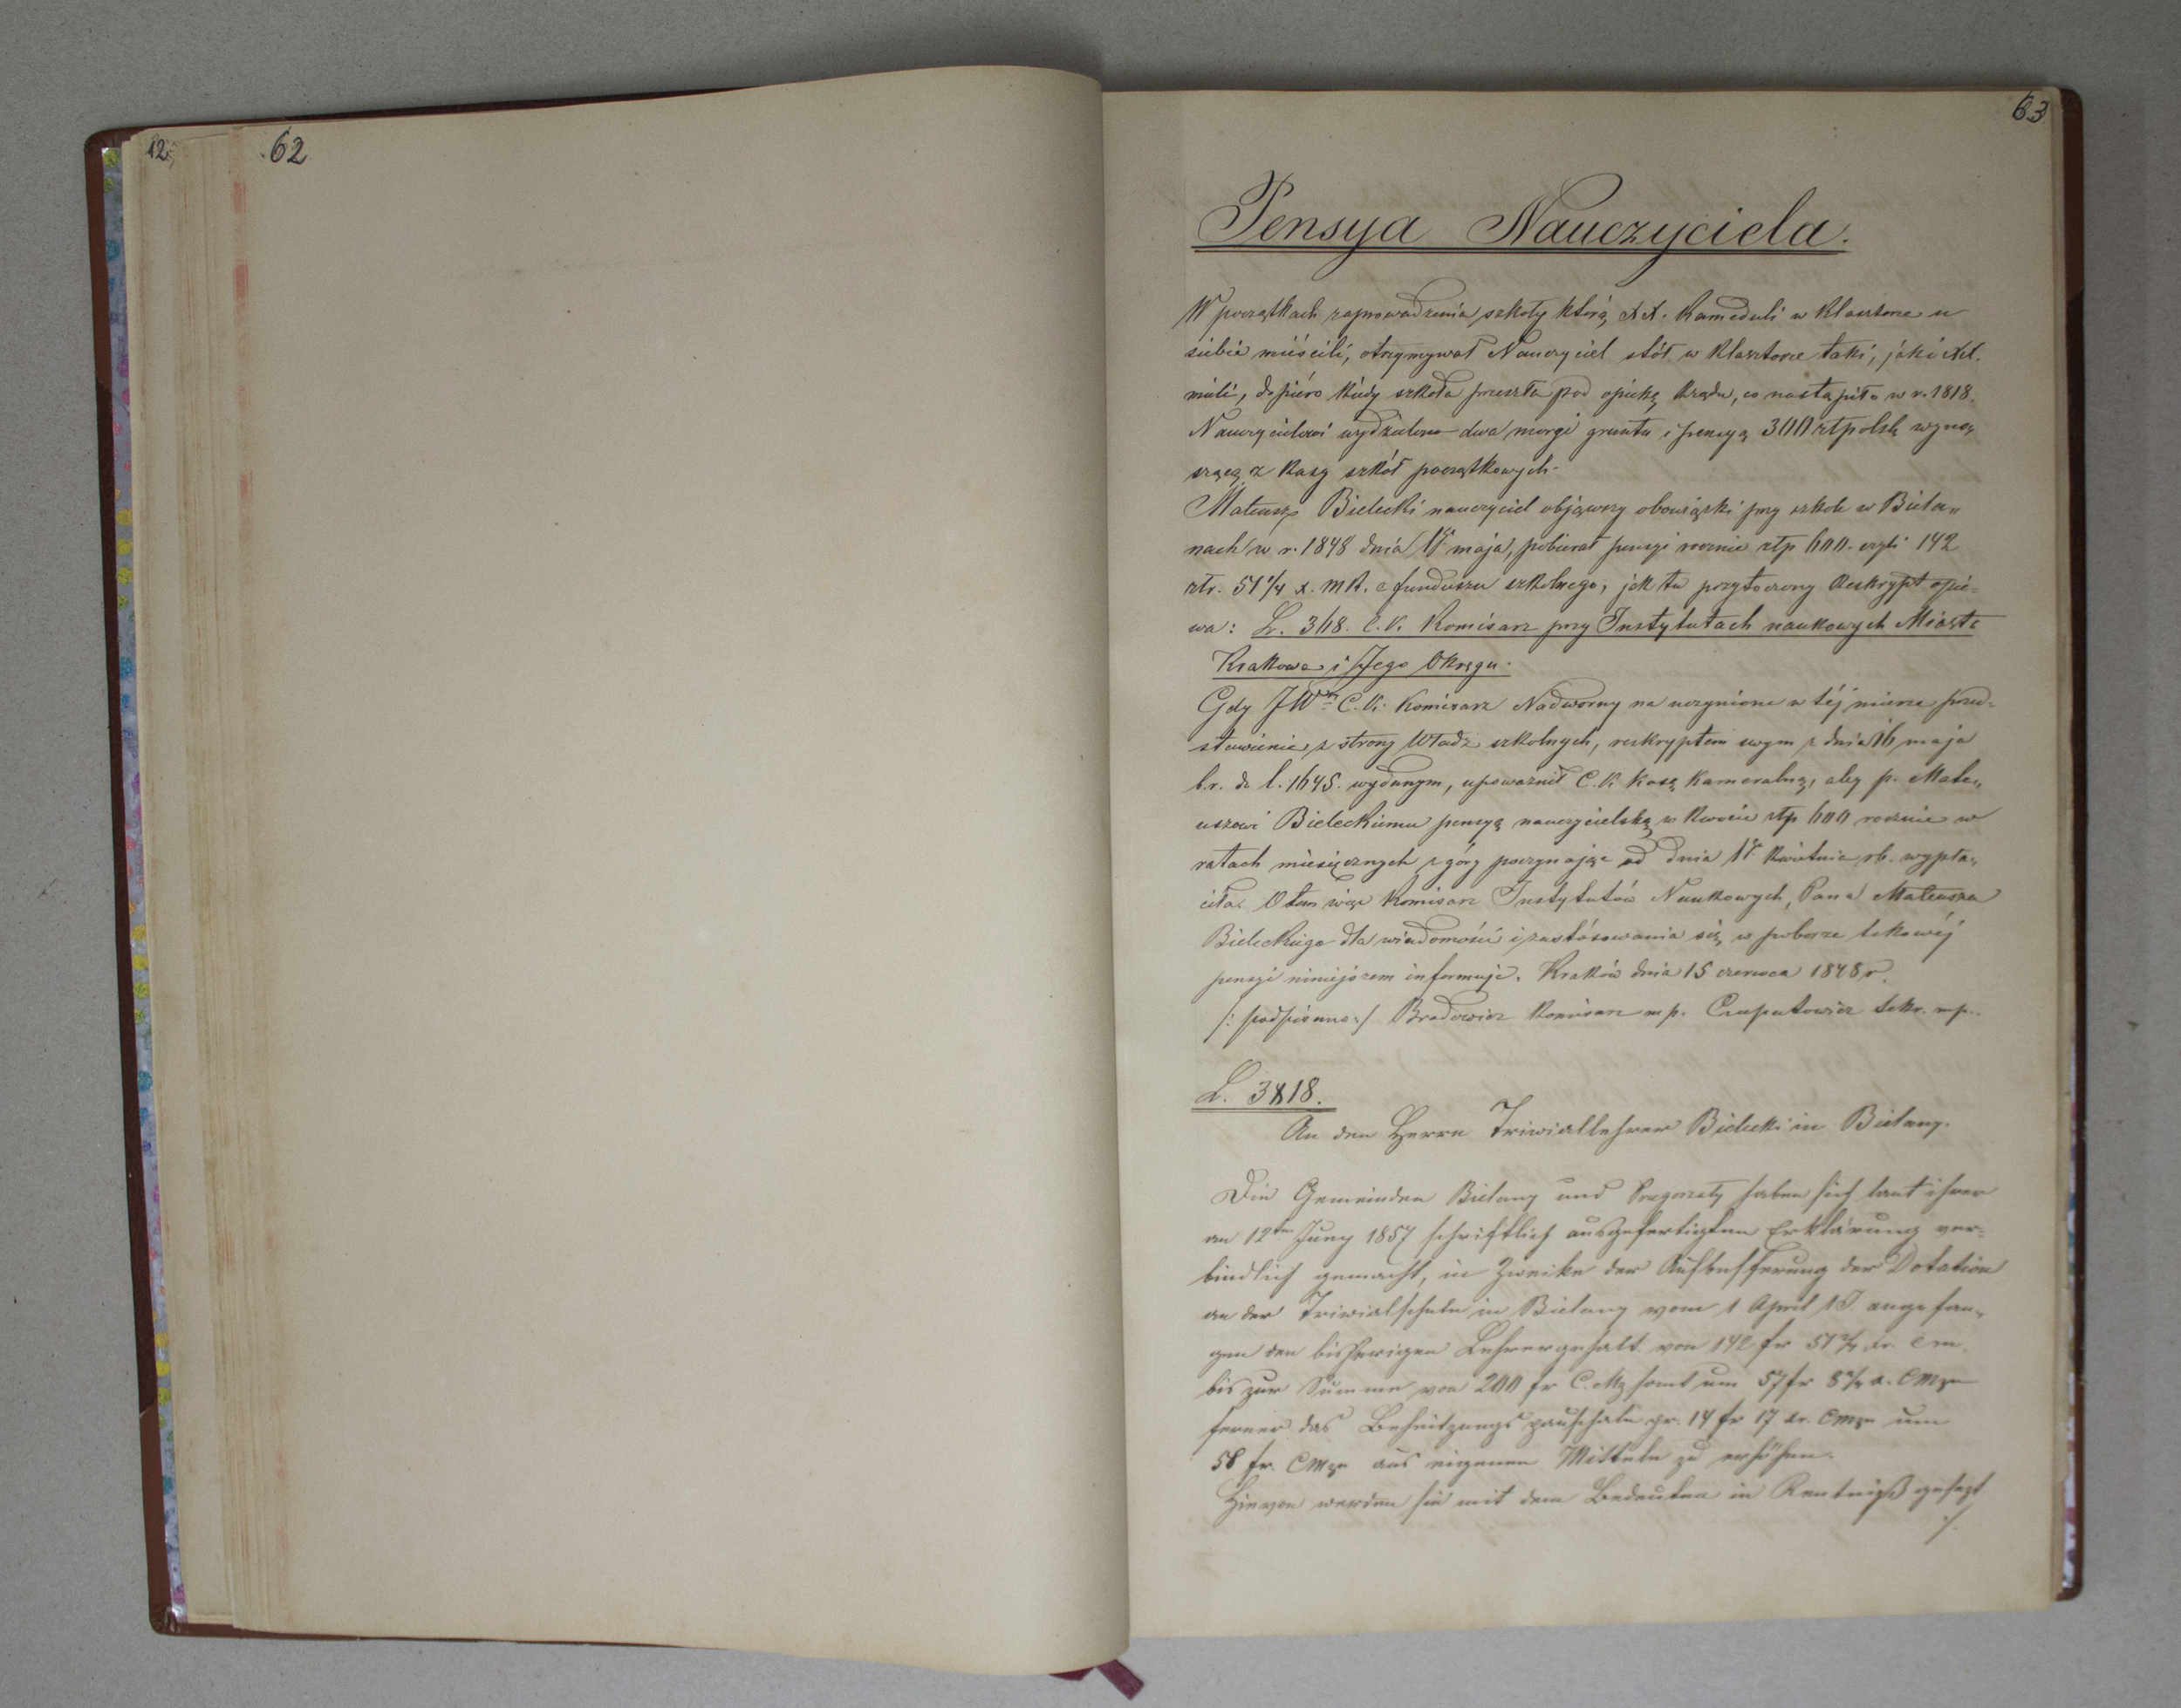 12.
62
63
Pensya Nauczyciela.
W początkach zaprowadzenia szkoły którą XX. Kameduli w Klasztorze u
siebie mieścili, otrzymywał Nauczyciel stół w Klasztorze taki, jaki XX.
mieli, dopiéro kiedy szkoła przeszła pod opiekę Rządu, co nastąpiło w r. 1818.
Nauczycielowi wydzielono dwa morgi gruntu i pensyą 300 złtpolsk wyno„
szącą z Kasy szkół początkowych.
Mateusz Bielecki nauczyciel objąwszy obowiązki przy szkole w Biela„
nach w r. 1848 dnia 1go maja, pobierał pensyi rocznie złp 600. czyli 142
złr. 51 1/4 x. mk. z funduszu szkolnego, jak tu przytoczony Reskrypt opié-
wa: L. 368. C. K. Komisarz przy Instytutach naukowych Miasta
Krakowa i Jego Okręgu.
Gdy JW C. K. Komisarz Nadworny na uczynione w téj mierze przed-
stawienie z strony Władz szkolnych, reskryptem swym z dnia 16 maja
b.r. do l. 1645. wydanym, upoważnił C. K. Kasę Kameralną, aby p. Mate„
uszowi Bieleckiemu pensyą nauczycielską w kwocie złp 600 rocznie w
ratach miesięcznych z góry poczynając od dnia 1go Kwietnia rb. wypła„
ciła. O tem więc Komisarz Instytutów Naukowych, Pana Mateusza
Bieleckiego dla wiadomości i zastósowania się w poborze takowéj
pensyi niniejszem informuje. Kraków dnia 15 czerwca 1848 r.
/: podpisano :/ Brodowicz Komisarz mp. Czaputowicz sekr. mp.
L. 3818.
An den Herrn Triviallehrer Bielecki in Bielany.
Die Gemeinden Bielany und Przegorzały haben sich laut ihrer
am 12ten Juny 1857 schriftlich ausgefertigten Erklärung ver-
bindlich gemacht, im Zwecke der Aufbesserung der Dotation
an der Trivialschule in Bielany vom 1 April l J. angefan„
gen den bisherigen Lehrergehalt von 142 fr 51 3/4 xr. Cm.
bis zur Summe von 200 fr C. Mz somit um 57 fr 8 x. CMze
ferner das Beheitzungspauschale pr. 14 fr 17 xr. CMze um
58 fr. CMze aus eigenen Mitteln zu erhöhen.
Hievon werden sie mit dem Bedeuten in Kentniß gesezt
./.